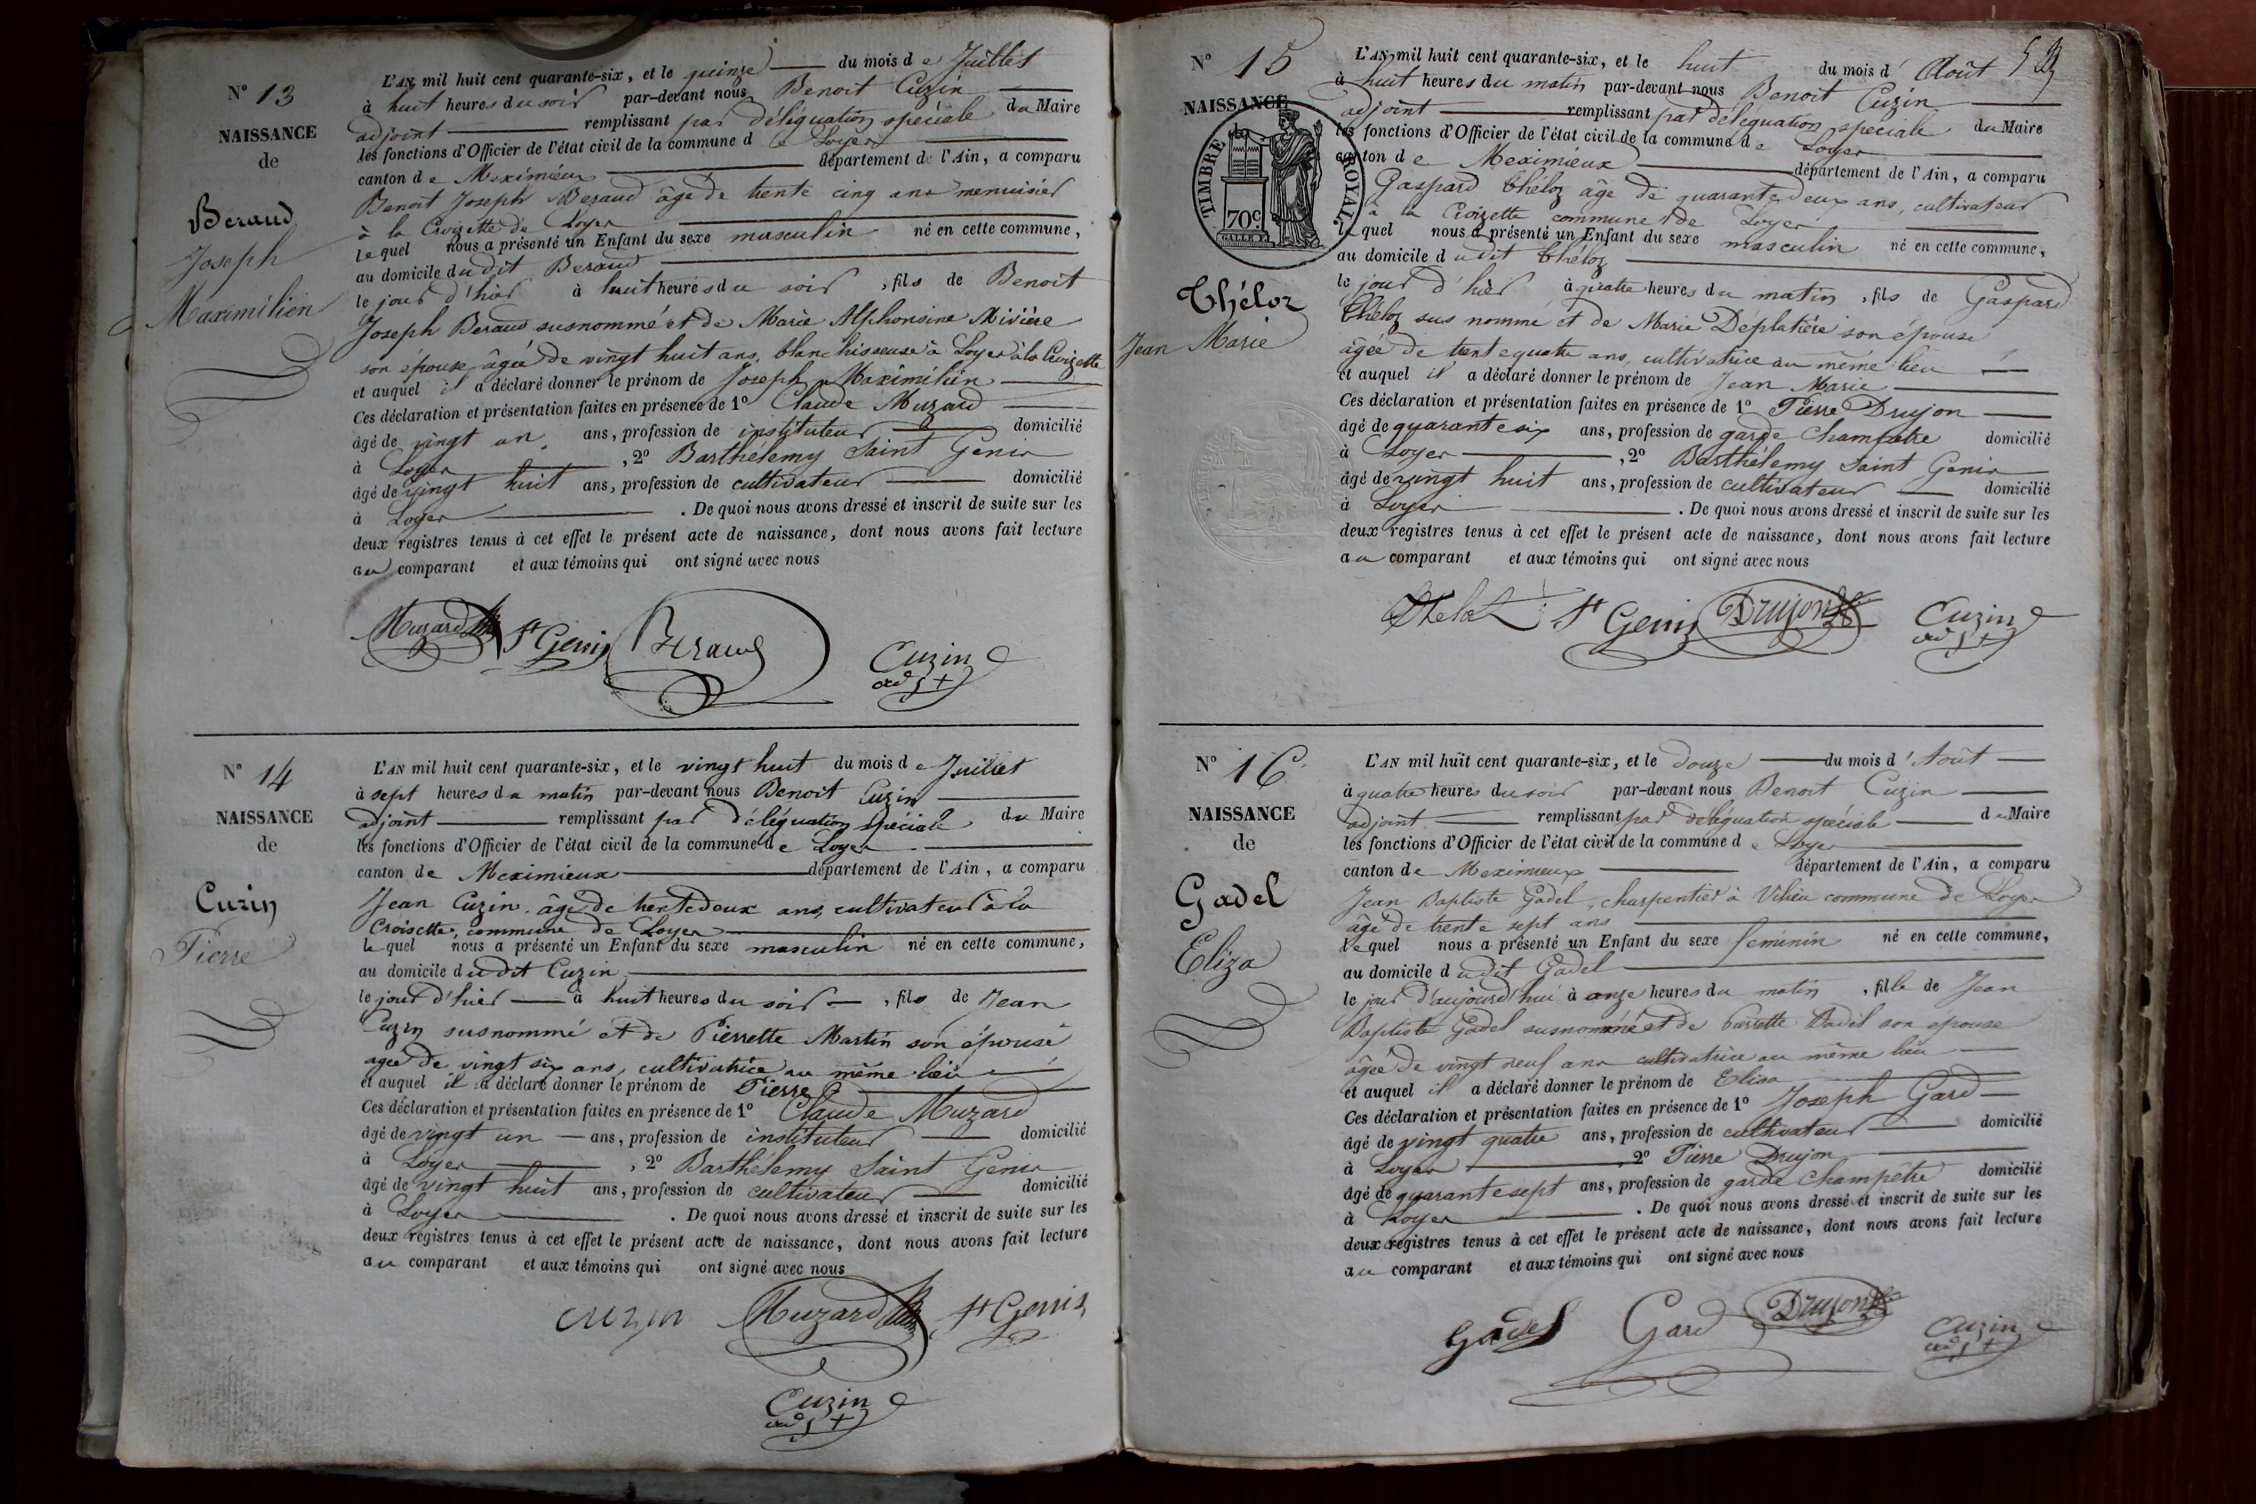 N° 13
NAISSANCE
de
Beraud
Joseph
Maximilien
L'AN mil huit cent quarante-six, et le quinze du mois de Juillet
à huit heures du soir par-devant nous Benoit Cuzin
adjoint remplissant par déléguation spéciale du Maire
les fonctions d'Officier de l'état civil de la commune de Loyer
canton de Meximieux département de l'Ain, a comparu
Benoit Joseph Beraud âgé de trente cinq ans menuisier
à la Croizette de Loyer
lequel nous a présenté un Enfant du sexe masculin né en cette commune,
au domicile dudit Beraud
le jour d'hier à huit heures du soir, fils de Benoit
Joseph Beraud susnommé et de Marie Alphonsine Mivière
son épouse âgée de vingt huit ans, blanchisseuse à Loyer à la Croizette
et auquel il a déclaré donner le prénom de Joseph Maximilien
Ces déclaration et présentation faites en présence de 1° Claude Muzard
âgé de vingt un ans, profession de instituteur domicilié
à Loyer, 2° Barthélemy Saint Genis
âgé de vingt huit ans, profession de cultivateur domicilié
à Loyer. De quoi nous avons dressé et inscrit de suite sur les
deux registres tenus à cet effet le présent acte de naissance, dont nous avons fait lecture
au comparant et aux témoins qui ont signé avec nous
Muzard St Genis Beraud Cuzin
adjt
N° 14
NAISSANCE
de
Cuzin
Pierre
L'AN mil huit cent quarante-six, et le vingt huit du mois de Juillet
à sept heures du matin par-devant nous Benoit Cuzin
adjoint remplissant par déléguation spéciale du Maire
les fonctions d'Officier de l'état civil de la commune de Loyer
canton de Meximieux département de l'Ain, a comparu
Jean Cuzin âgé de trente deux ans, cultivateur à la
Croisette, commune de Loyer
lequel nous a présenté un Enfant du sexe masculin né en cette commune,
au domicile dudit Cuzin
le jour d'hier à huit heures du soir, fils de Jean
Cuzin susnommé et de Pierrette Martin son épouse
agée de vingt six ans, cultivatrice au même lieu
et auquel il a déclaré donner le prénom de Pierre
Ces déclaration et présentation faites en présence de 1° Claude Muzard
âgé de vingt un ans, profession de instituteur domicilié
à Loyer, 2° Barthélemy Saint Genis
âgé de vingt huit ans, profession de cultivateur domicilié
à Loyer. De quoi nous avons dressé et inscrit de suite sur les
deux registres tenus à cet effet le présent acte de naissance, dont nous avons fait lecture
au comparant et aux témoins qui ont signé avec nous
cuzin Muzard St Genis
Cuzin
adjt
N° 15
NAISSANCE
TIMBRE ROYAL
70c
Théloz
Jean Marie
L'AN mil huit cent quarante-six, et le huit du mois d'Août
à huit heures du matin par-devant nous Benoit Cuzin
adjoint remplissant par déléguation speciale du Maire
les fonctions d'Officier de l'état civil de la commune de Loyer
canton de Meximieux département de l'Ain, a comparu
Gaspard Théloz âgé de quarante deux ans, cultivateur
à la Croizette commune de Loyer
lequel nous a présenté un Enfant du sexe masculin né en cette commune,
au domicile dudit Théloz
le jour d'hier à quatre heures du matin, fils de Gaspard
Théloz sus nommé et de Marie Déplatière son épouse
âgée de trente quatre ans, cultivatrice au même lieu
et auquel il a déclaré donner le prénom de Jean Marie
Ces déclaration et présentation faites en présence de 1° Pierre Drujon
âgé de quarante six ans, profession de garde champêtre domicilié
à Loyer, 2° Barthélemy Saint Genis
âgé de vingt huit ans, profession de cultivateur domicilié
à Loyer. De quoi nous avons dressé et inscrit de suite sur les
deux registres tenus à cet effet le présent acte de naissance, dont nous avons fait lecture
au comparant et aux témoins qui ont signé avec nous
Theloz St Genis Drujon Cuzin
adjt
N° 16
NAISSANCE
de
Gadel
Eliza
L'AN mil huit cent quarante-six, et le douze du mois d'Août
à quatre heures du soir par-devant nous Benoit Cuzin
adjoint remplissant par déléguation spéciale du Maire
les fonctions d'Officier de l'état civil de la commune de Loyer
canton de Meximieux département de l'Ain, a comparu
Jean Baptiste Gadel, charpentier à Vilieu commune de Loyer
âgé de trente sept ans
lequel nous a présenté un Enfant du sexe feminin né en cette commune,
au domicile dudit Gadel
le jour d'aujourd'hui à onze heures du matin, fille de Jean
Baptiste Gadel susnommé et de son épouse
âgée de vingt neuf ans cultivatrice au même lieu
et auquel il a déclaré donner le prénom de Elisa
Ces déclaration et présentation faites en présence de 1° Joseph Gard
âgé de vingt quatre ans, profession de cultivateur domicilié
à Loyer, 2° Pierre Drujon
âgé de quarante sept ans, profession de garde champêtre domicilié
à Loyer. De quoi nous avons dressé et inscrit de suite sur les
deux registres tenus à cet effet le présent acte de naissance, dont nous avons fait lecture
au comparant et aux témoins qui ont signé avec nous
Gadel Gard Drujon Cuzin
adjt